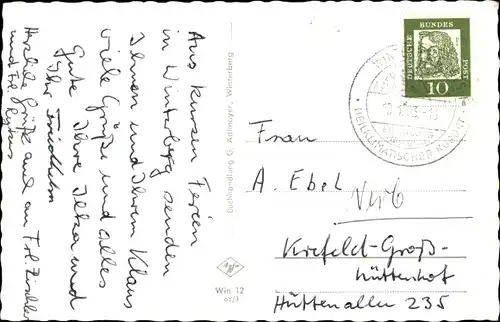 Aus kurzen Ferien
in Winterberg senden
Ihnen und Ihrem Klaus
viele Grüße und alles
Gute Ihre Ilksa und
Ihr Friedhelm
Herzliche Grüße auch an Frl.
und Frl.
Buchhandlung G. Aellmeyer, Winterberg
Win 12
DEUTSCHE
BUNDES
POST
10
HEILKLIMATISCHER KURORT
Frau
A. Ebel
Krefeld-Groß-
hüttenhof
Hüttenallee 235